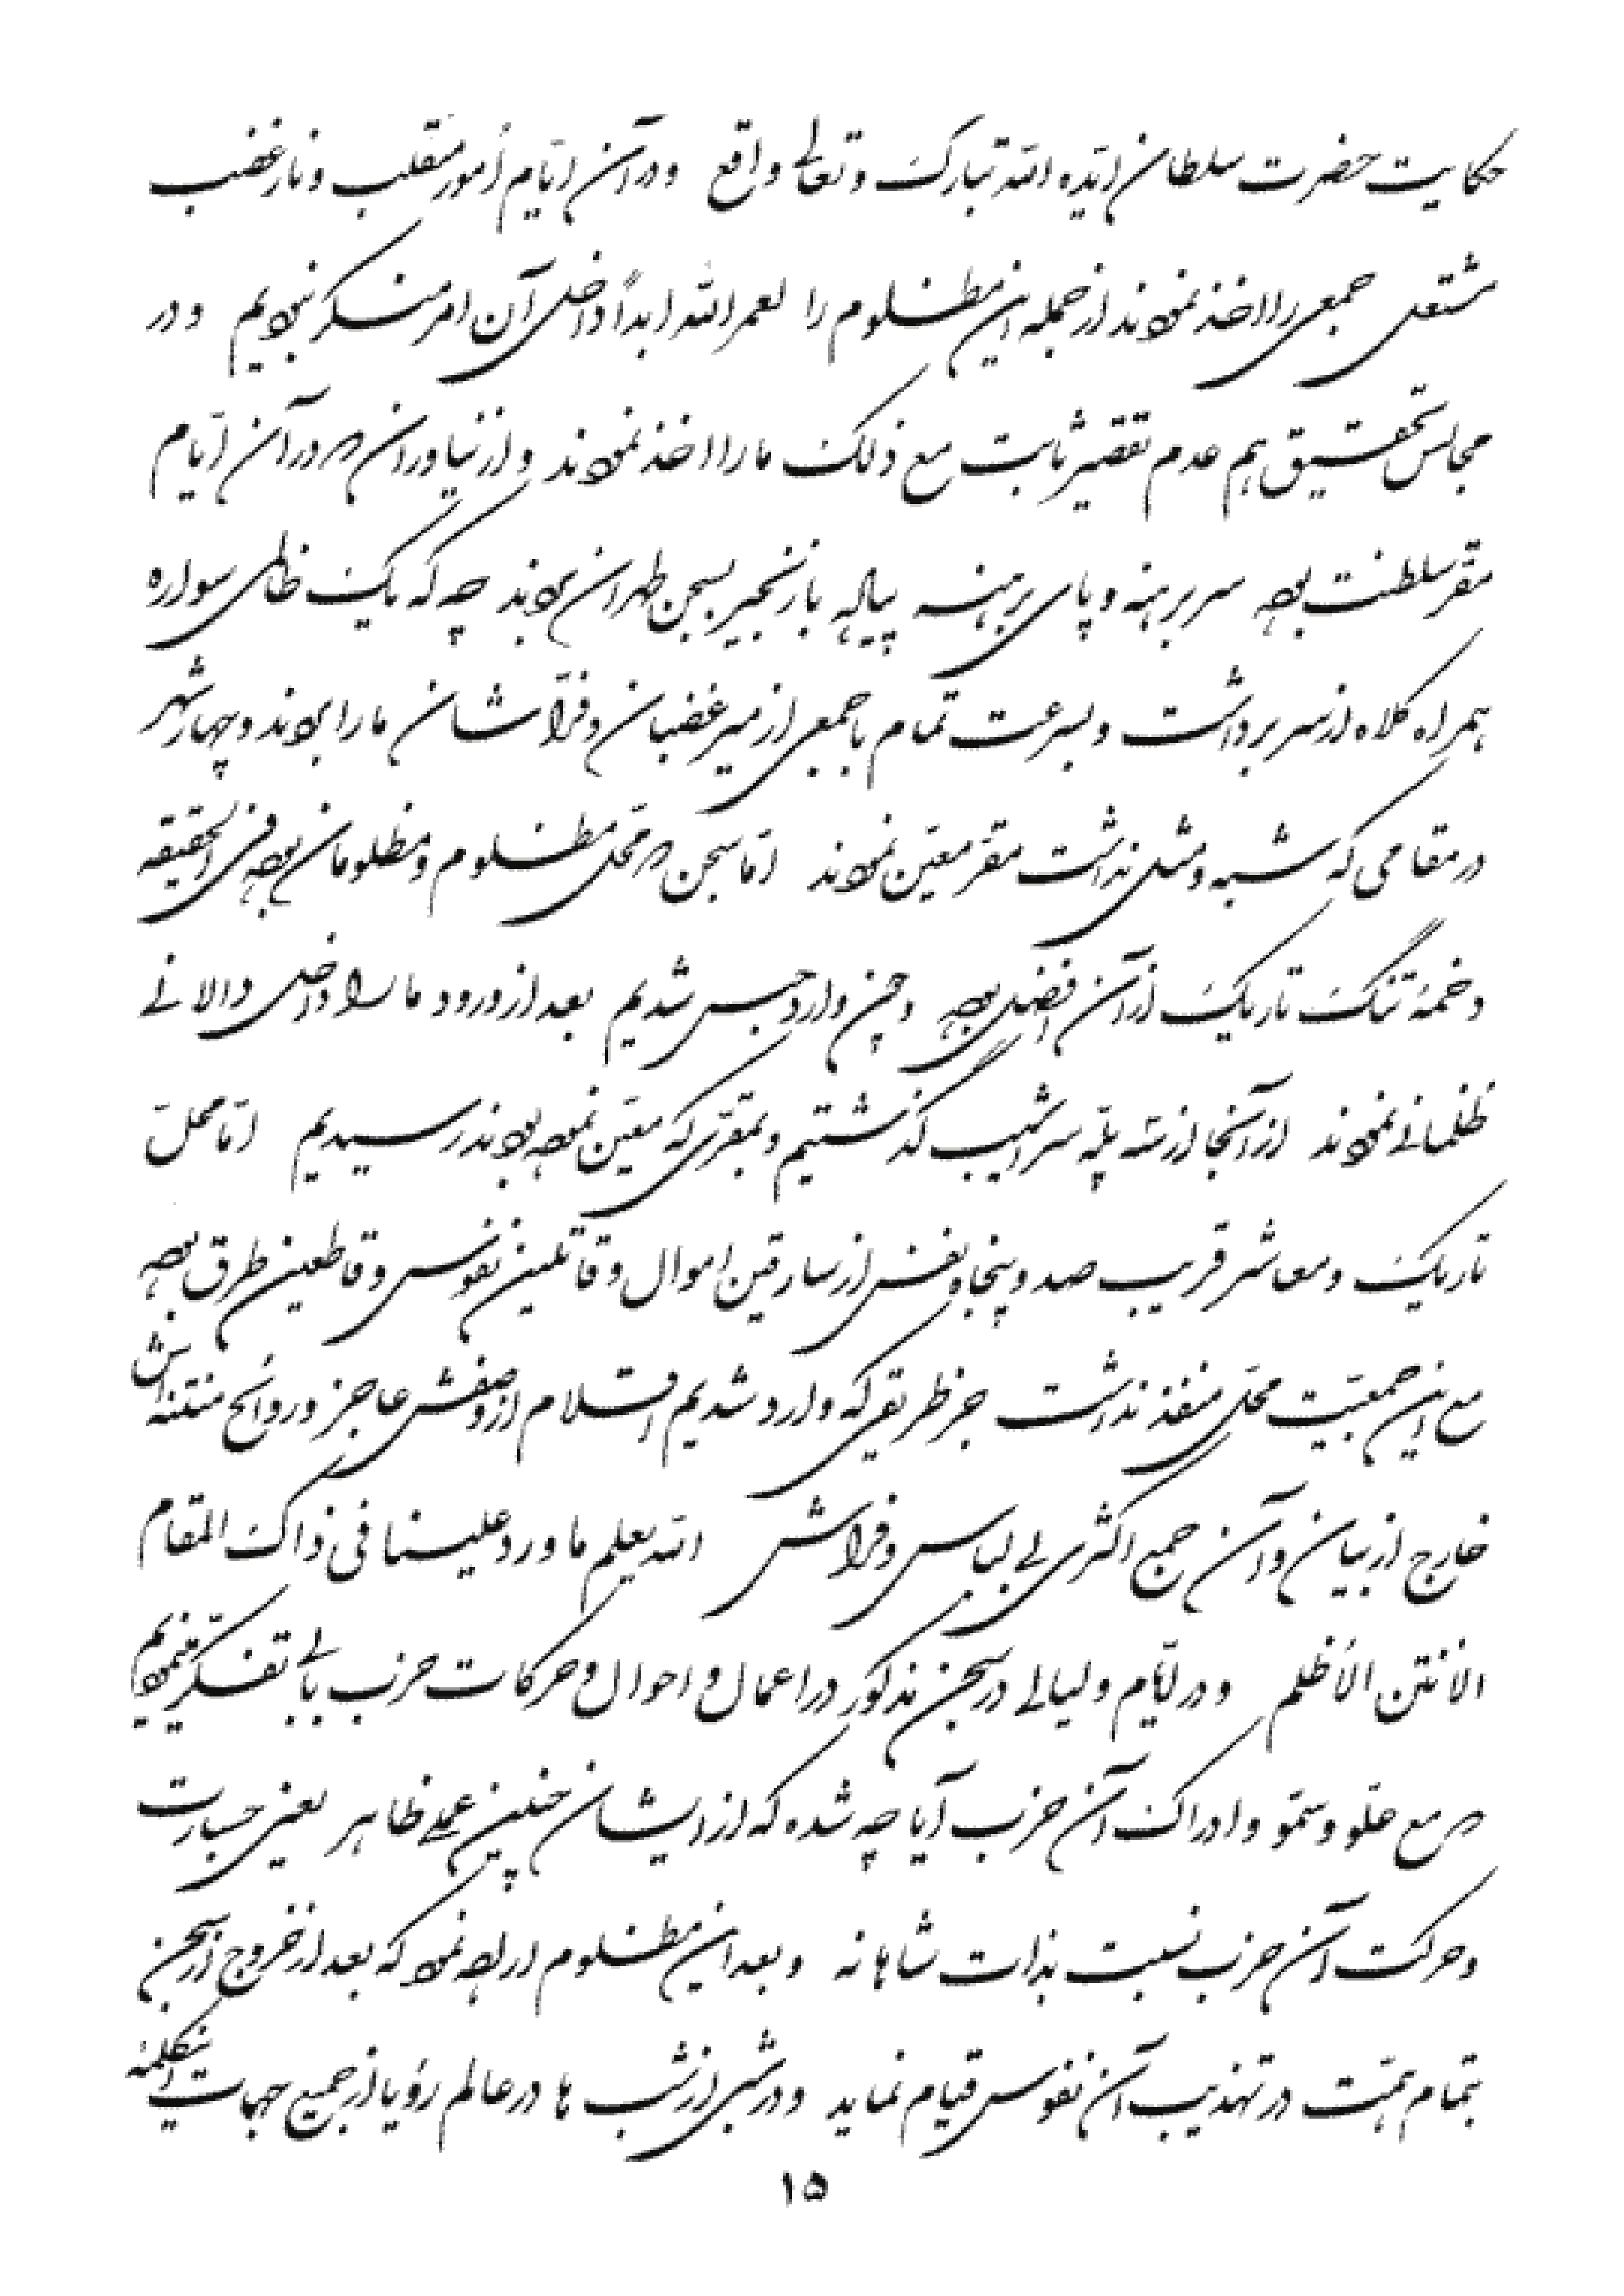 حکایت حضرت سلطان ایّده الله تبارک و تعالی واقع و در آن ایّام اُمور منقلب و نار غضب
مشتعل جمعی را اخذ نمودند از جمله این مظلوم را لعمر الله ابداً داخل آن امر منکر نبودیم و در
مجالس تحقیق هم عدم تقصیر ثابت مع ذلک ما را اخذ نمودند و از نیاوران که در آن ایّام
مقرّ سلطنت بوده سر برهنه و پای برهنه پیاده با زنجیر بسجن طهران بردند چه که یک ظالمی سواره
همراه کلاه از سر برداشت و بسرعت تمام با جمعی از میرغضبان و فرّاشان ما را بردند و چهار شهر
در مقامی که شبه و مثل نداشت مقرّ معیّن نمودند امّا سجن که محلّ مظلوم و مظلومان بوده فی الحقیقه
دخمهٔ تنگ تاریک از آن افضل بوده و چون وارد حبس شدیم بعد از ورود ما را داخل دالانی
ظلمانی نمودند از آنجا از سه پلّه سراشیب گذشتیم و بمقرّی که معیّن نموده بودند رسیدیم امّا محلّ
تاریک و معاشر قریب صد و پنجاه نفس از سارقین اموال و قاتلین نفوس و قاطعین طرق بوده
مع این جمعیّت محلّ منفذ نداشت جز طریقی که وارد شدیم اقلام از وصفش عاجز و روائح منتنه‌اش
خارج از بیان و آن جمع اکثری بی لباس و فراش الله یعلم ما ورد علینا فی ذاک المقام
الانتن الأظلم و در ایّام و لیالی در سجن مذکور در اعمال و احوال و حرکات حزب بابی تفکّر مینمودیم
که مع علوّ و سموّ و ادراک آن حزب آیا چه شده که از ایشان چنین عملی ظاهر یعنی جسارت
و حرکت آن حزب نسبت بذات شاهانه و بعد این مظلوم اراده نمود که بعد از خروج از سجن
بتمام همّت در تهذیب آن نفوس قیام نماید و در شبی از شب ها در عالم رؤیا از جمیع جهات اینکلمهٔ
۱۵